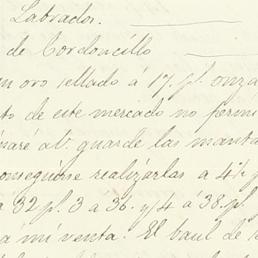 Labrador.
de Cordoncillo
en oro sellado á 17 p/. onza
to de este mercado no permi
guarde las manta
conseguirse realizarlas a 4½ p
a 32 p/. 3 a 36. y 4 á 38. p/.
a mi venta. El baul de